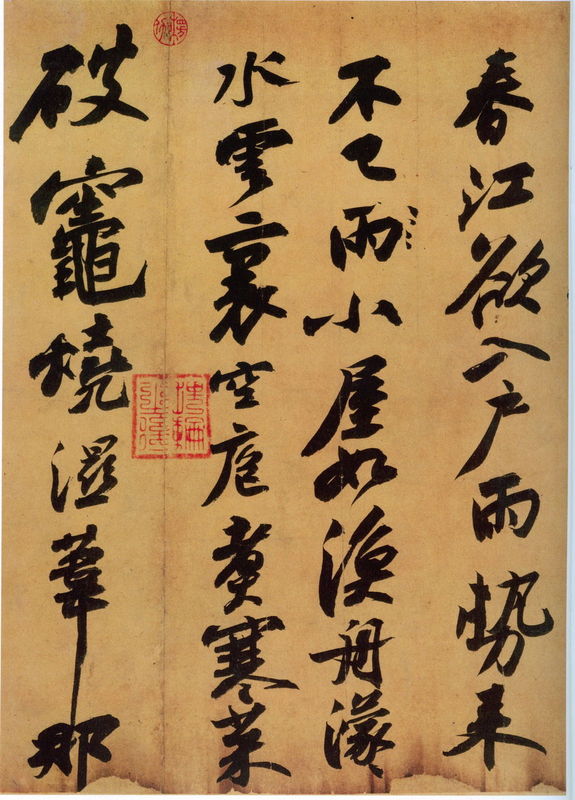 春江欲入戶雨勢来
不已雨小屋如漁舟濛々
水雲裏空庖煑寒菜
破竈燒濕葦那